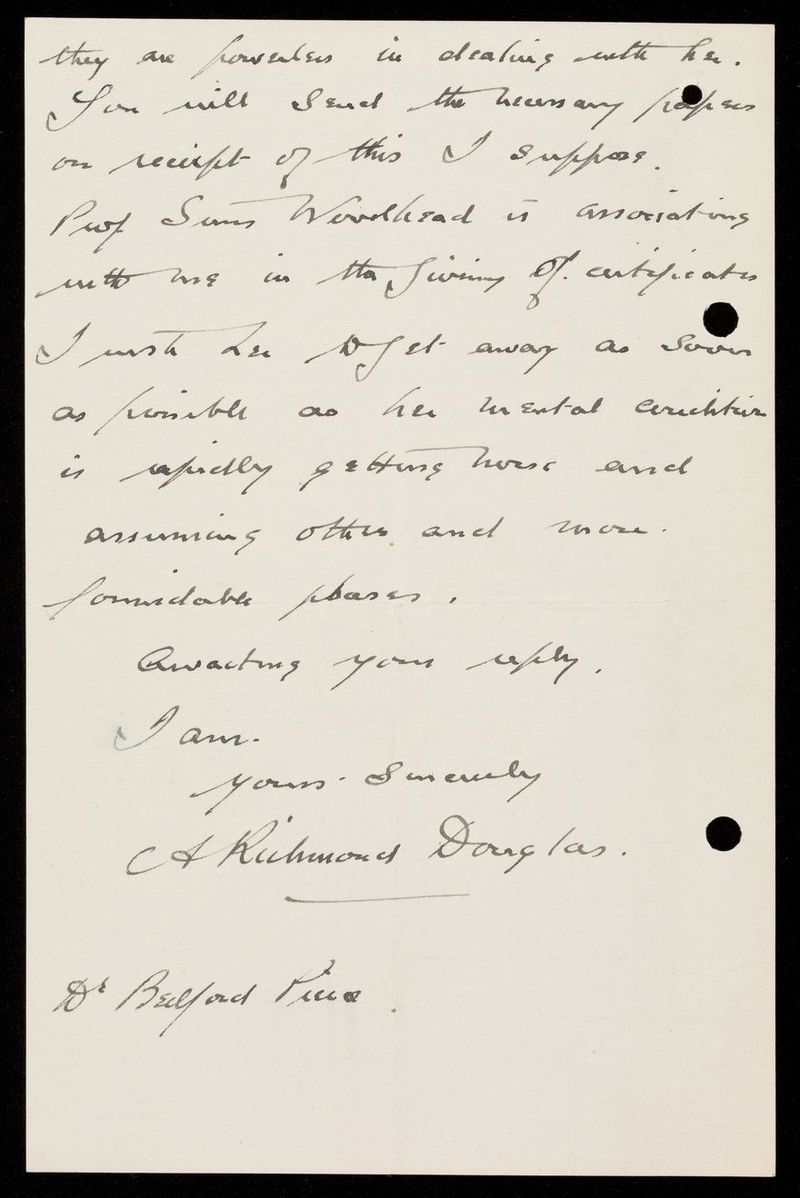 they are powerless in dealing with her.
You will send the necessary papers
on receipt of this I suppose.
Prof Sims Woodhead is associating
with me in the giving of certificates
I wish her to get away as soon
as possible as her mental condition
is rapidly getting worse and
assuming other and more
formidable phases.
Awaiting your reply.
I am.
Yours Sincerely
A Richmond Douglas.
Dr Bedford Pierce.